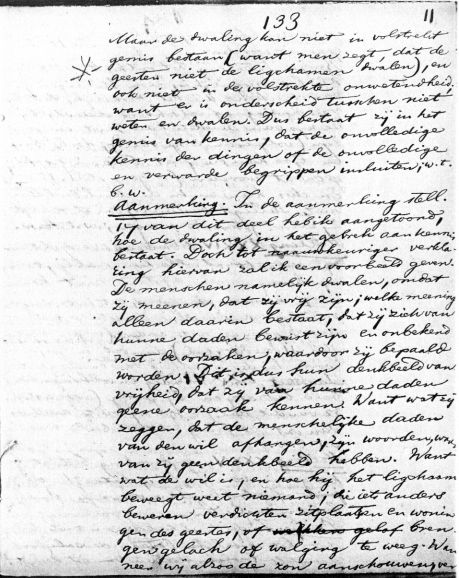 133 11
Maar de dwaling kan niet in volstrekt
gemis bestaan (want men zegt, dat de
geesten niet de ligchamen dwalen), en
ook niet in de volstrekte onwetendheid,
want er is onderscheid tusschen niet
weten en dwalen. Dus bestaat zij in het
gemis van kennis, dat de onvolledige
kennis der dingen of de onvolledige
en verwarde begrippen insluiten; w.t.
b. w.
Aanmerking. In de aanmerking stell.
17 van dit deel heb ik aangetoond,
hoe de dwaling in het gebrek aan kennis
bestaat. Doch tot naauwkeuriger verkla-
ring hiervan zal ik een voorbeeld geven.
De menschen namelijk dwalen, omdat
zij meenen, dat zij vrij zijn; welke meening
alleen daarin bestaat, dat zij zich van
hunne daden bewust zijn en onbekend
met de oorzaken, waardoor zij bepaald
worden. Dit is dus hun denkbeeld van
vrijheid, dat zij van hunne daden
geene oorzaak kennen. Want wat zij
zeggen, dat de menschelijke daden
van den wil afhangen, zijn woorden, waar
van zij geen denkbeeld hebben. Want
wat de wil is, en hoe hij het ligchaam
beweegt weet niemand; die iets anders
beweren verdichten zitplaatsen en wonin
gen des geestes, of bren-
gen gelach of walging te weeg. Wan
neer wij alzoo de zon aanschouwen, ver